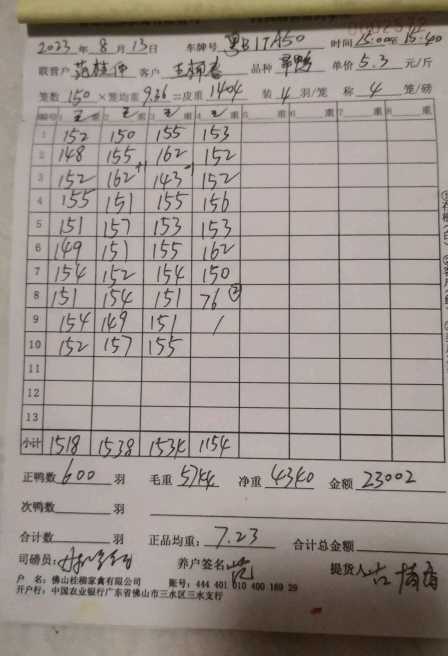 2023年8月13日 车牌号 粤B1TA50 时间 15:00至15:40
联营户 客户 品种 单价 5.3 元/斤
笼数 150 ×笼均重 9.36 =皮重 1404 装 4 羽/笼 称 4 笼/磅
编号 1 毛重 2 毛重 3 毛重 4 毛重 5 重 6 重 7 重 8 重
1 152 150 155 153
2 148 155 162 152
3 152 162 +1 143 -1 152
4 155 151 155 156
5 151 157 153 153
6 149 151 155 162
7 154 152 154 150
8 151 154 151 76 ②
9 154 149 151 /
10 152 157 155
11
12
13
小计 1518 1538 1534 1154
正鸭数 600 羽 毛重 5744 净重 4340 金额 23002
次鸭数 羽
合计数 羽 正品均重: 7.23 合计总金额
司磅员: 养户签名 范 提货人
户 名: 佛山桂柳家禽有限公司 账号: 444 401 010 400 169 29
开户行: 中国农业银行广东省佛山市三水区三水支行